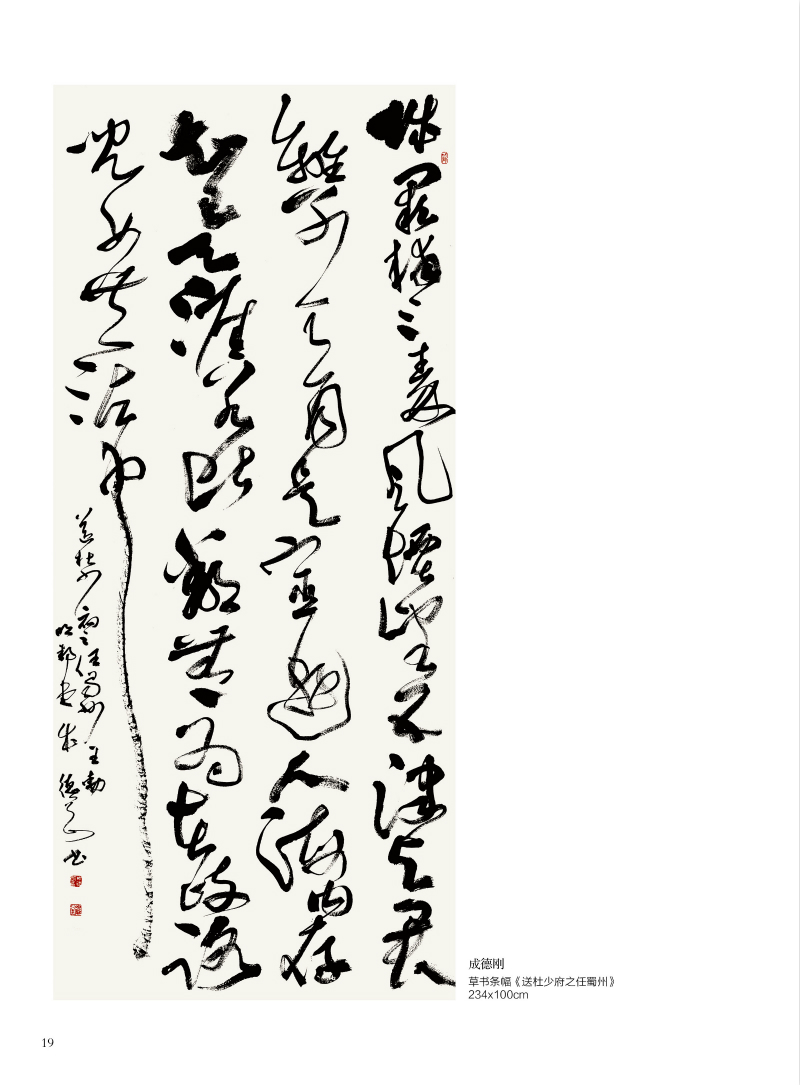 城闕輔三秦風煙望五津與君
離別意同是宦遊人海内存
知己天涯若比鄰無為在歧路
兒女共沾巾
送杜少府之任蜀州王勃
成德刚书
成德刚
草书条幅《送杜少府之任蜀州》
234x100cm
19